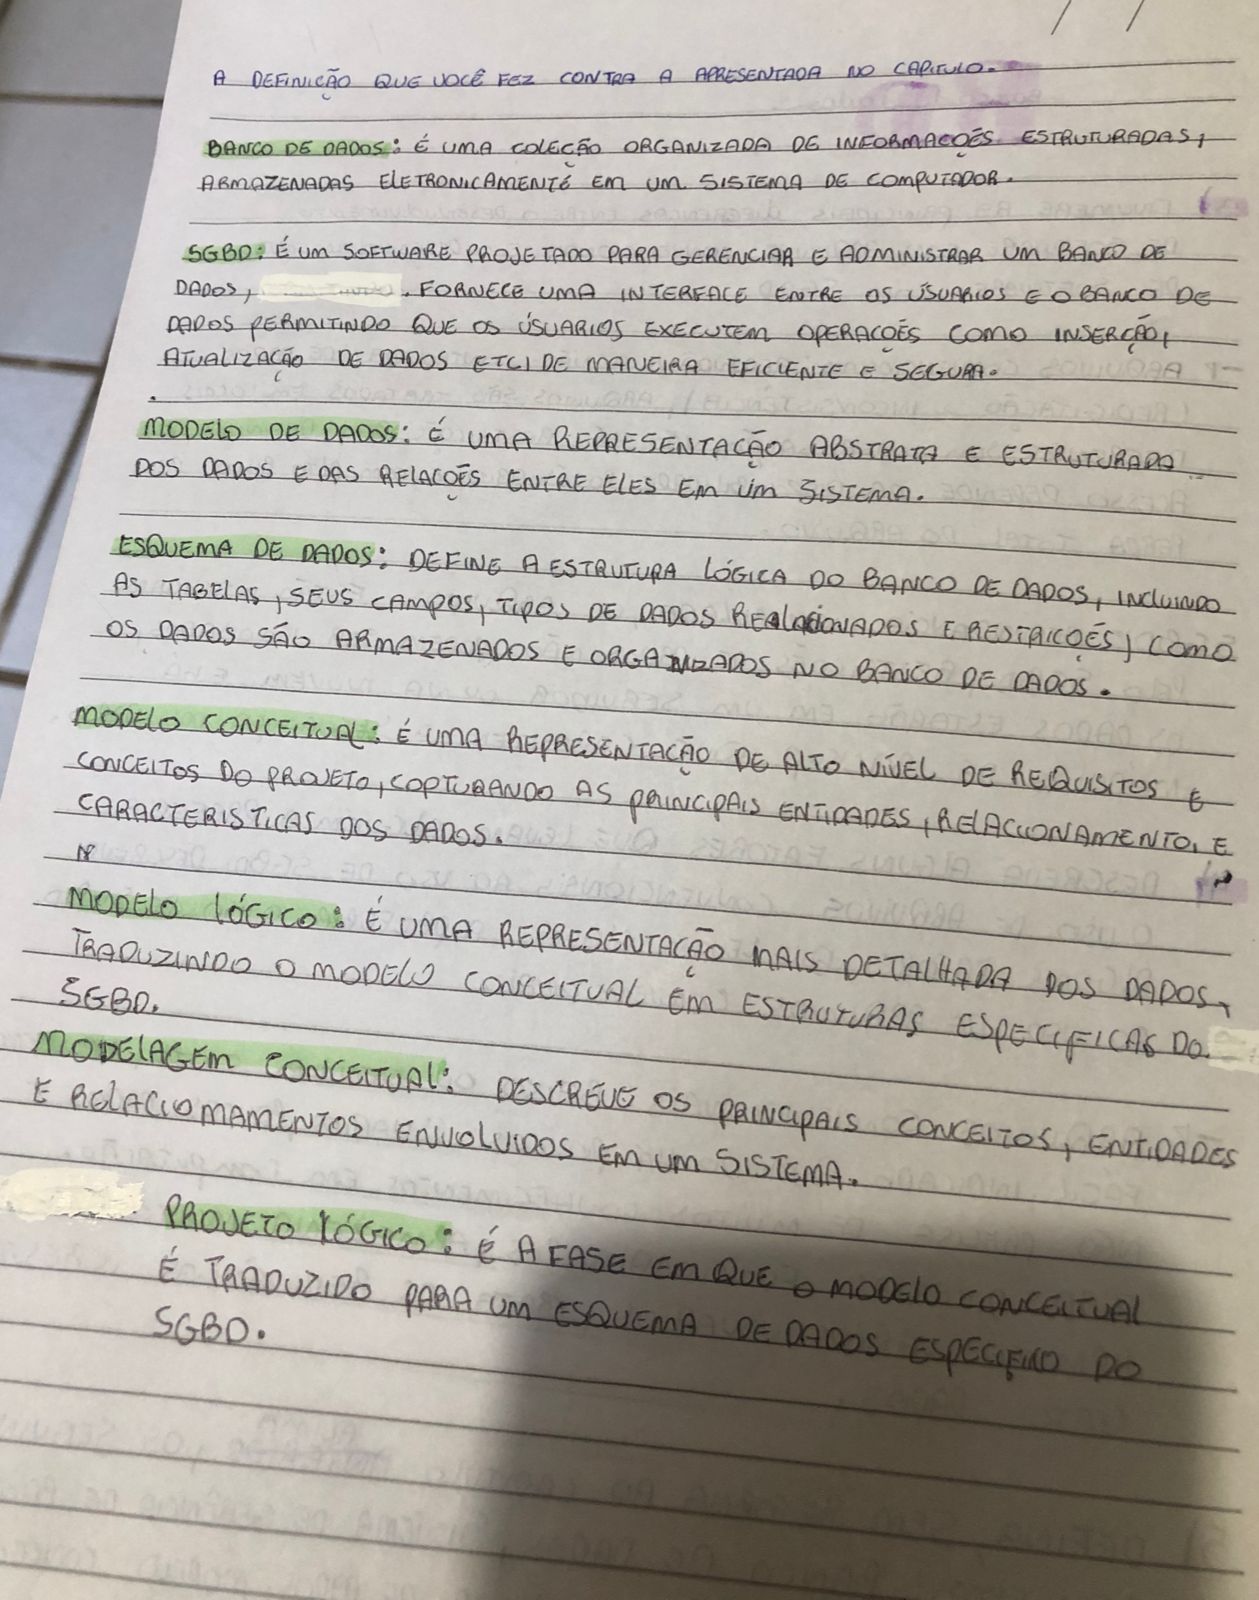 A DEFINIÇÃO QUE VOCÊ FEZ CONTRA A APRESENTADA NO CAPITULO.
BANCO DE DADOS: É UMA COLEÇÃO ORGANIZADA DE INFORMAÇÕES ESTRUTURADAS,
ARMAZENADAS ELETRONICAMENTE EM UM SISTEMA DE COMPUTADOR.
SGBD: É UM SOFTWARE PROJETADO PARA GERENCIAR E ADMINISTRAR UM BANCO DE
DADOS, . FORNECE UMA INTERFACE ENTRE OS ÚSUARIOS E O BANCO DE
DADOS PERMITINDO QUE OS ÚSUARIOS EXECUTEM OPERAÇÕES COMO INSERÇÃO,
ATUALIZAÇÃO DE DADOS ETC, DE MANEIRA EFICIENTE E SEGURA.
MODELO DE DADOS: É UMA REPRESENTAÇÃO ABSTRATA E ESTRUTURADA
DOS DADOS E DAS RELAÇÕES ENTRE ELES EM UM SISTEMA.
ESQUEMA DE DADOS: DEFINE A ESTRUTURA LÓGICA DO BANCO DE DADOS, INCLUINDO
AS TABELAS, SEUS CAMPOS, TIPOS DE DADOS REALACIONADOS E RESTRIÇÕES, COMO
OS DADOS SÃO ARMAZENADOS E ORGANIZADOS NO BANCO DE DADOS.
MODELO CONCEITUAL: É UMA REPRESENTAÇÃO DE ALTO NÍVEL DE REQUISITOS E
CONCEITOS DO PROJETO, COPTURANDO AS PRINCIPAIS ENTIDADES, RELACIONAMENTO, E
CARACTERISTICAS DOS DADOS.
MODELO LÓGICO: É UMA REPRESENTAÇÃO MAIS DETALHADA DOS DADOS,
TRADUZINDO O MODELO CONCEITUAL EM ESTRUTURAS ESPECIFICAS DO
SGBD.
MODELAGEM CONCEITUAL: DESCREVE OS PRINCIPAIS CONCEITOS, ENTIDADES
E RELACIOMAMENTOS ENVOLVIDOS EM UM SISTEMA.
PROJETO LÓGICO: É A FASE EM QUE O MODELO CONCEITUAL
É TRADUZIDO PARA UM ESQUEMA DE DADOS ESPECIFICO DO
SGBD.